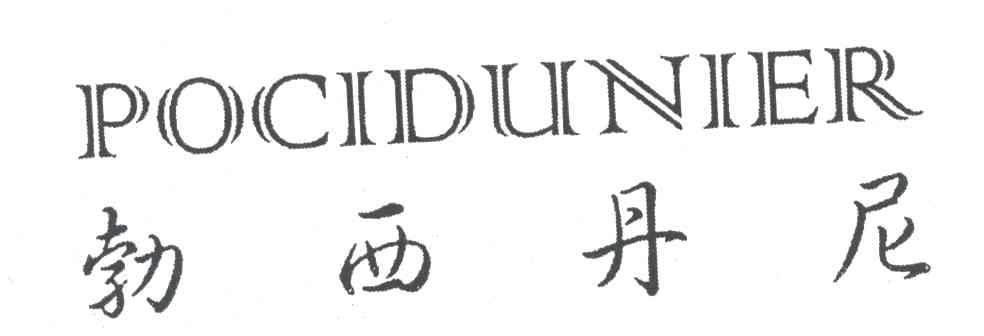 POCIDUNIER
勃西丹尼